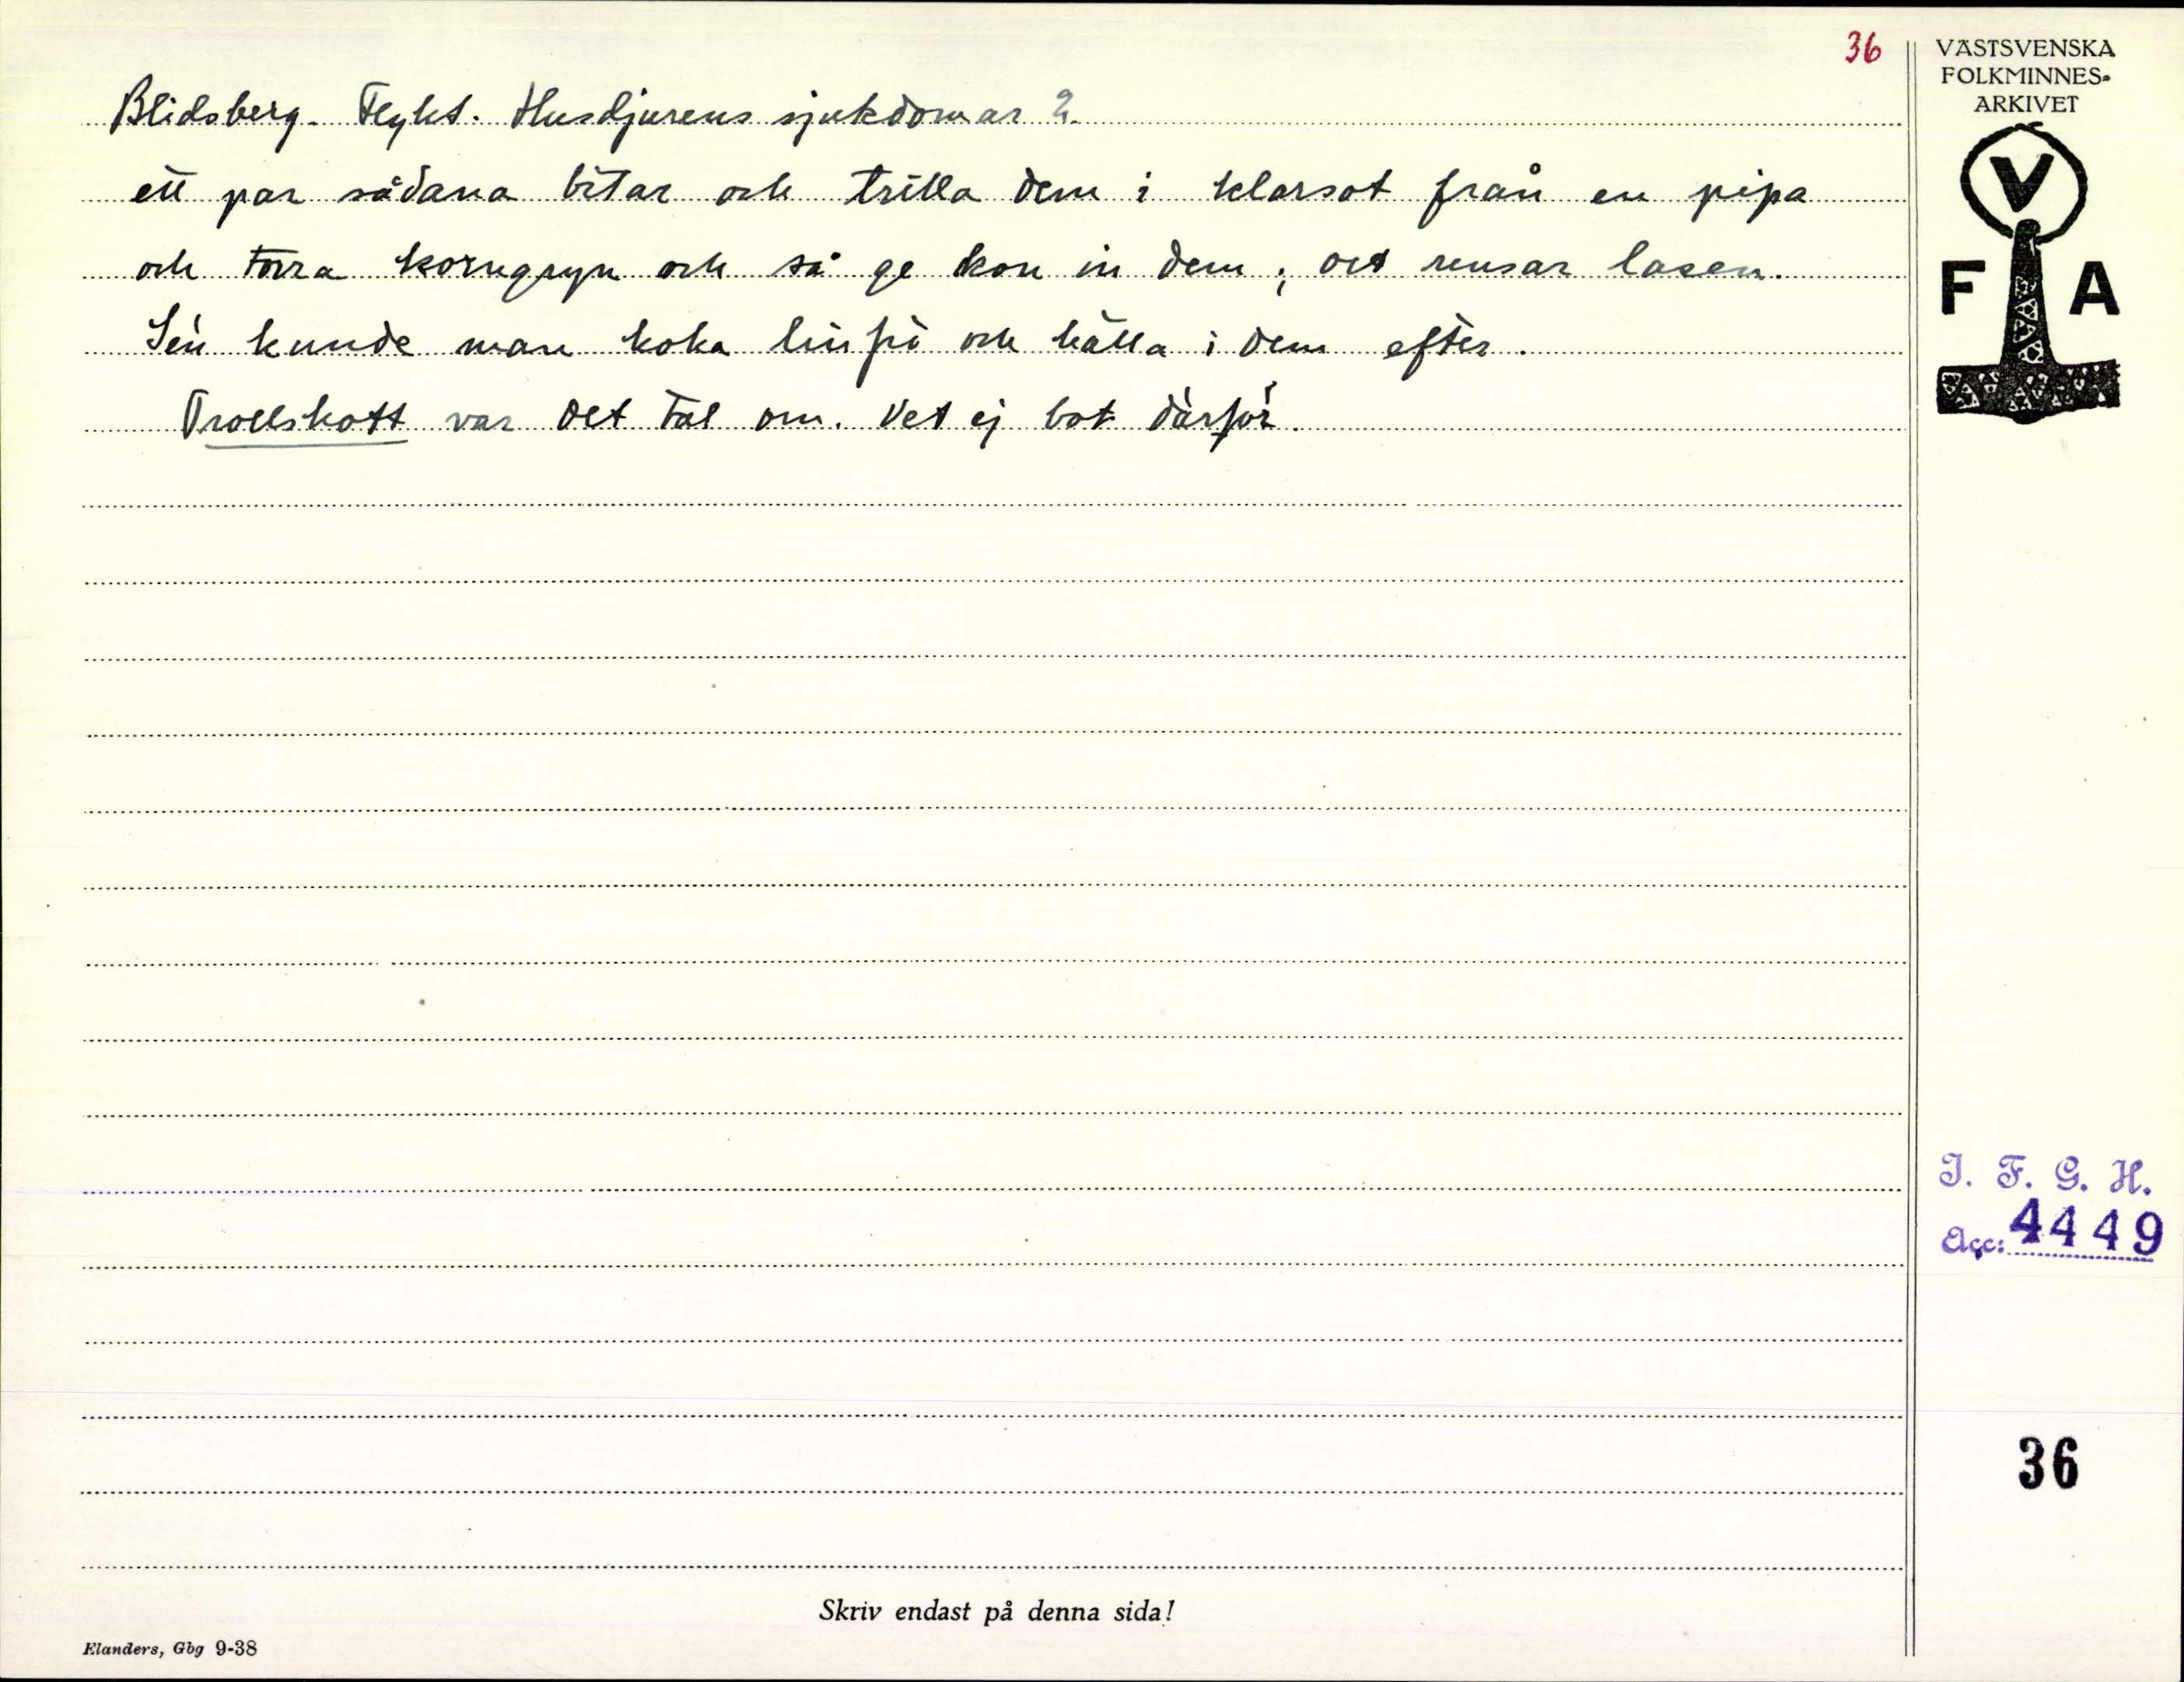 36
VÄSTSVENSKA
FOLKMINNES-
ARKIVET
V
F A
Blidsberg. Flykt. Husdjurens sjukdomar 2.
ett par sådana bitar och trilla dem i klarsot från en pipa
och torra korngryn och så ge kon in dem; det rensar lasen.
Sén kunde man koka linfrö och hälla i dem efter.
Trollskott var det tal om. Vet ej bot därför.
I. F. G. H.
Acc: 4449
36
Skriv endast på denna sida!
Elanders, Gbg 9-38